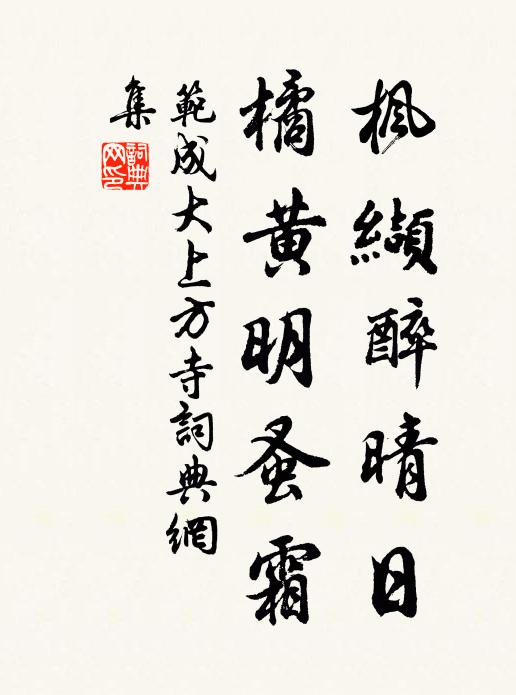 枫纈醉晴日
橘黄明蚤霜
範成大上方寺詞典網
集
詞典
网印